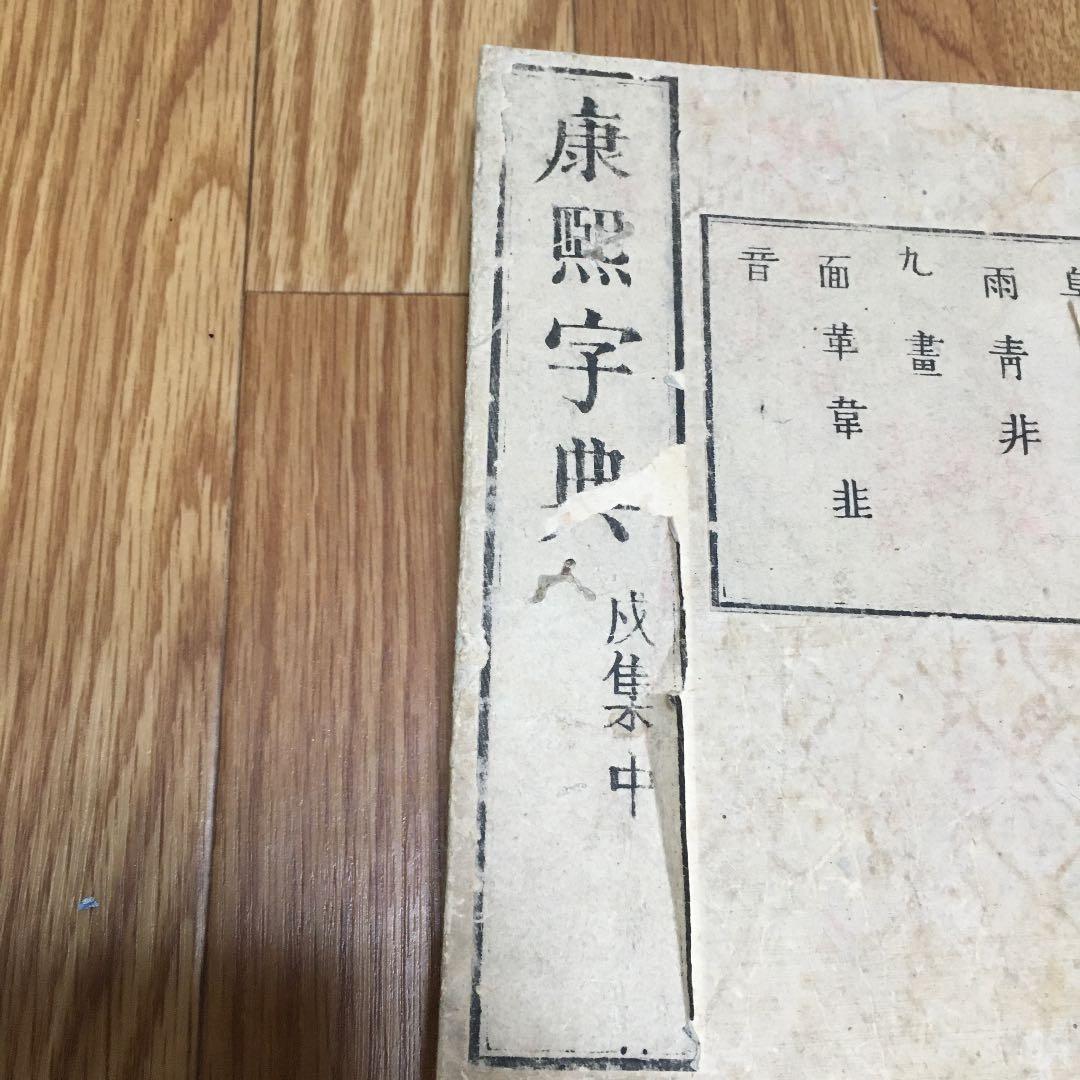 康熙字典
戌集中
雨青非
九畫
面革韋韭
音